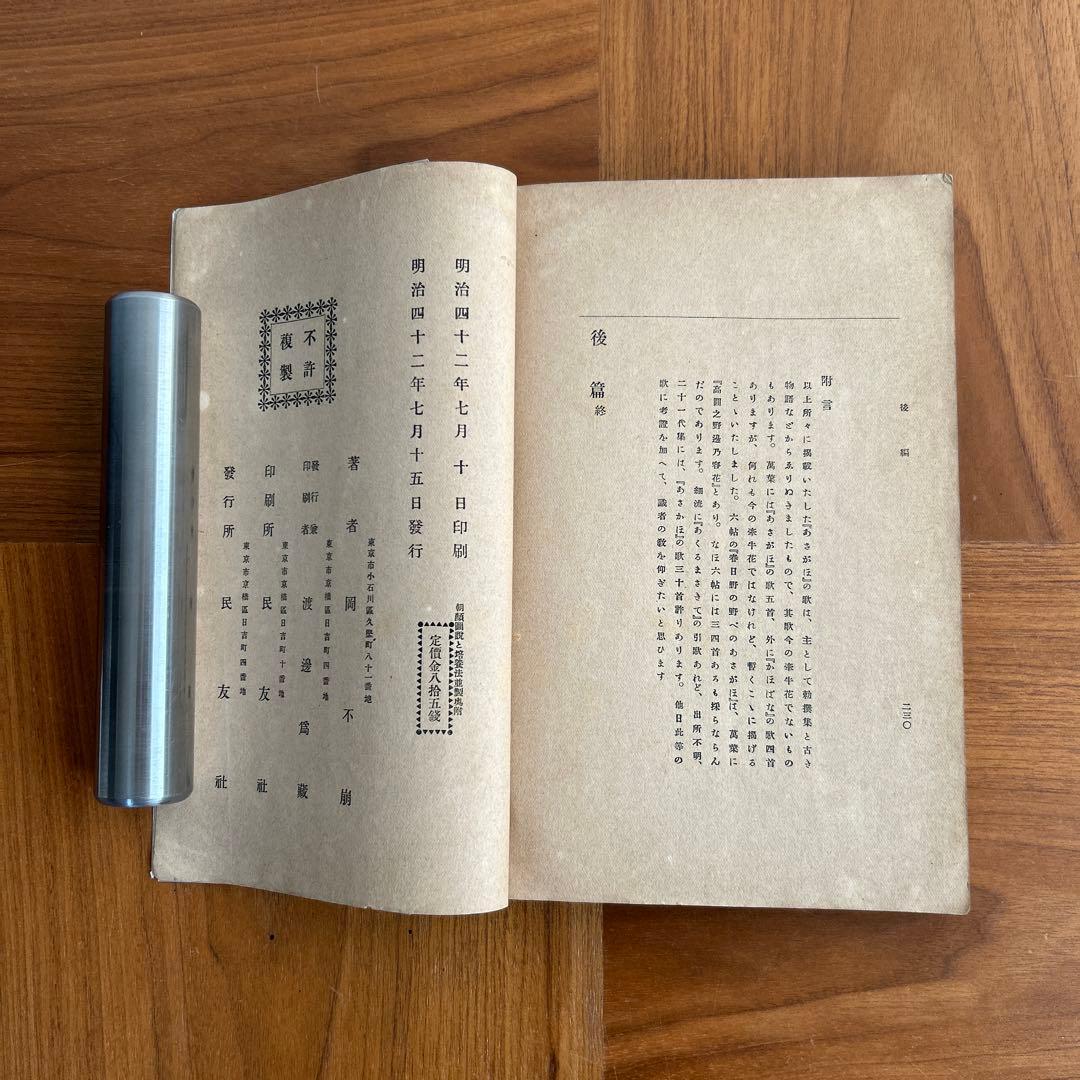 後編
二三〇
附言
以上所々に掲載いたした『あさがほ』の歌は、主として勅撰集と古き
物語などからゑりぬきましたもので、其歌今の牽牛花でないもの
もあります。萬葉には『あさがほ』の歌五首、外に『かほばな』の歌四首
ありますが、何れも今の牽牛花ではなけれど、暫くこゝに揭げる
ことゝいたしました。六帖の『春日野の野べのあさがほ』は、萬葉に
『高圓之野邊乃容花』とあり。なほ六帖には三四首あろも採らならん
だのであります。細流に『あくるまさきて』の引歌あれど、出所不明、
二十一代集には、『あさかほ』の歌三十首許りあります。他日此等の
歌に考證を加へて、識者の敎を仰ぎたいと思ひます
後篇終
明治四十二年七月十日印刷
明治四十二年七月十五日發行
朝顏圖說と培養法並製馮附
定價金八拾五錢
不許複製
東京市小石川區久堅町八十一番地
著者 岡不崩
東京市京橋區日吉町四番地
發行兼印刷者 渡邊爲藏
東京市京橋區日吉町十番地
印刷所 民友社
東京市京橋區日吉町四番地
發行所 民友社